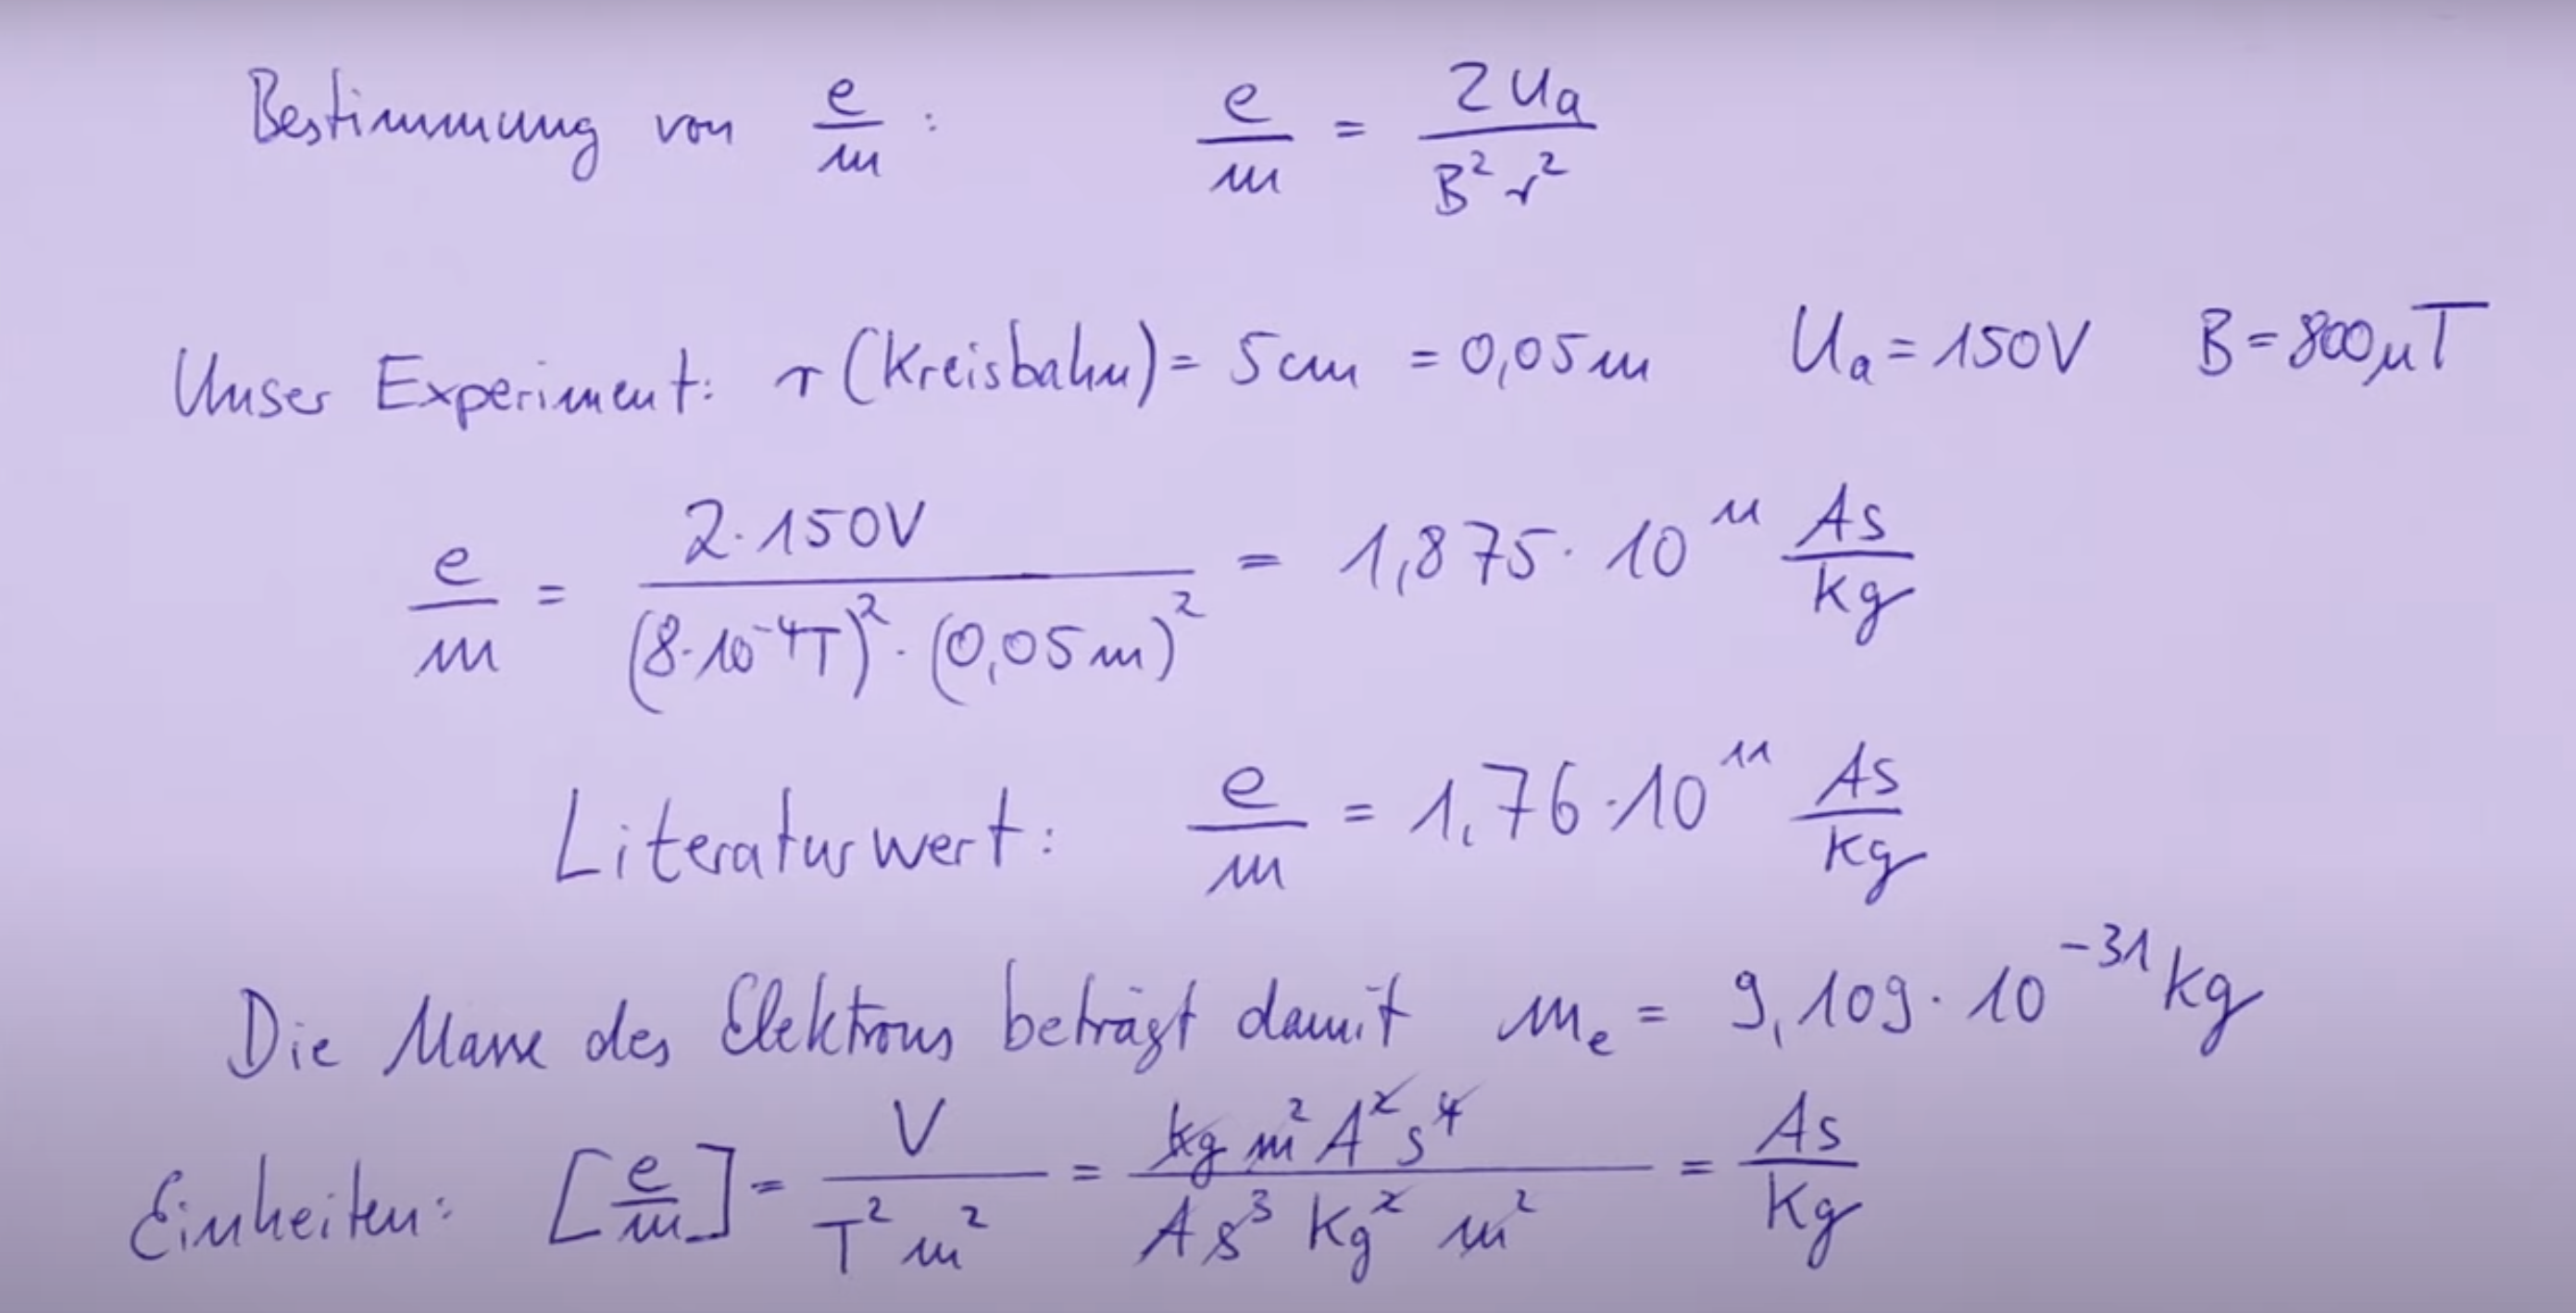 Bestimmung von e/m : e/m = 2Ua / B²r²
Unser Experiment: r (Kreisbahn) = 5cm = 0,05m Ua = 150V B = 800μT
e/m = 2·150V / (8·10⁻⁴T)²·(0,05m)² = 1,875·10¹¹ As/kg
Literaturwert: e/m = 1,76·10¹¹ As/kg
Die Masse des Elektrons beträgt damit mₑ = 9,109·10⁻³¹ kg
Einheiten: [e/m] = V / T² m² = kg m² A² s⁴ / A s³ kg² m² = As/kg